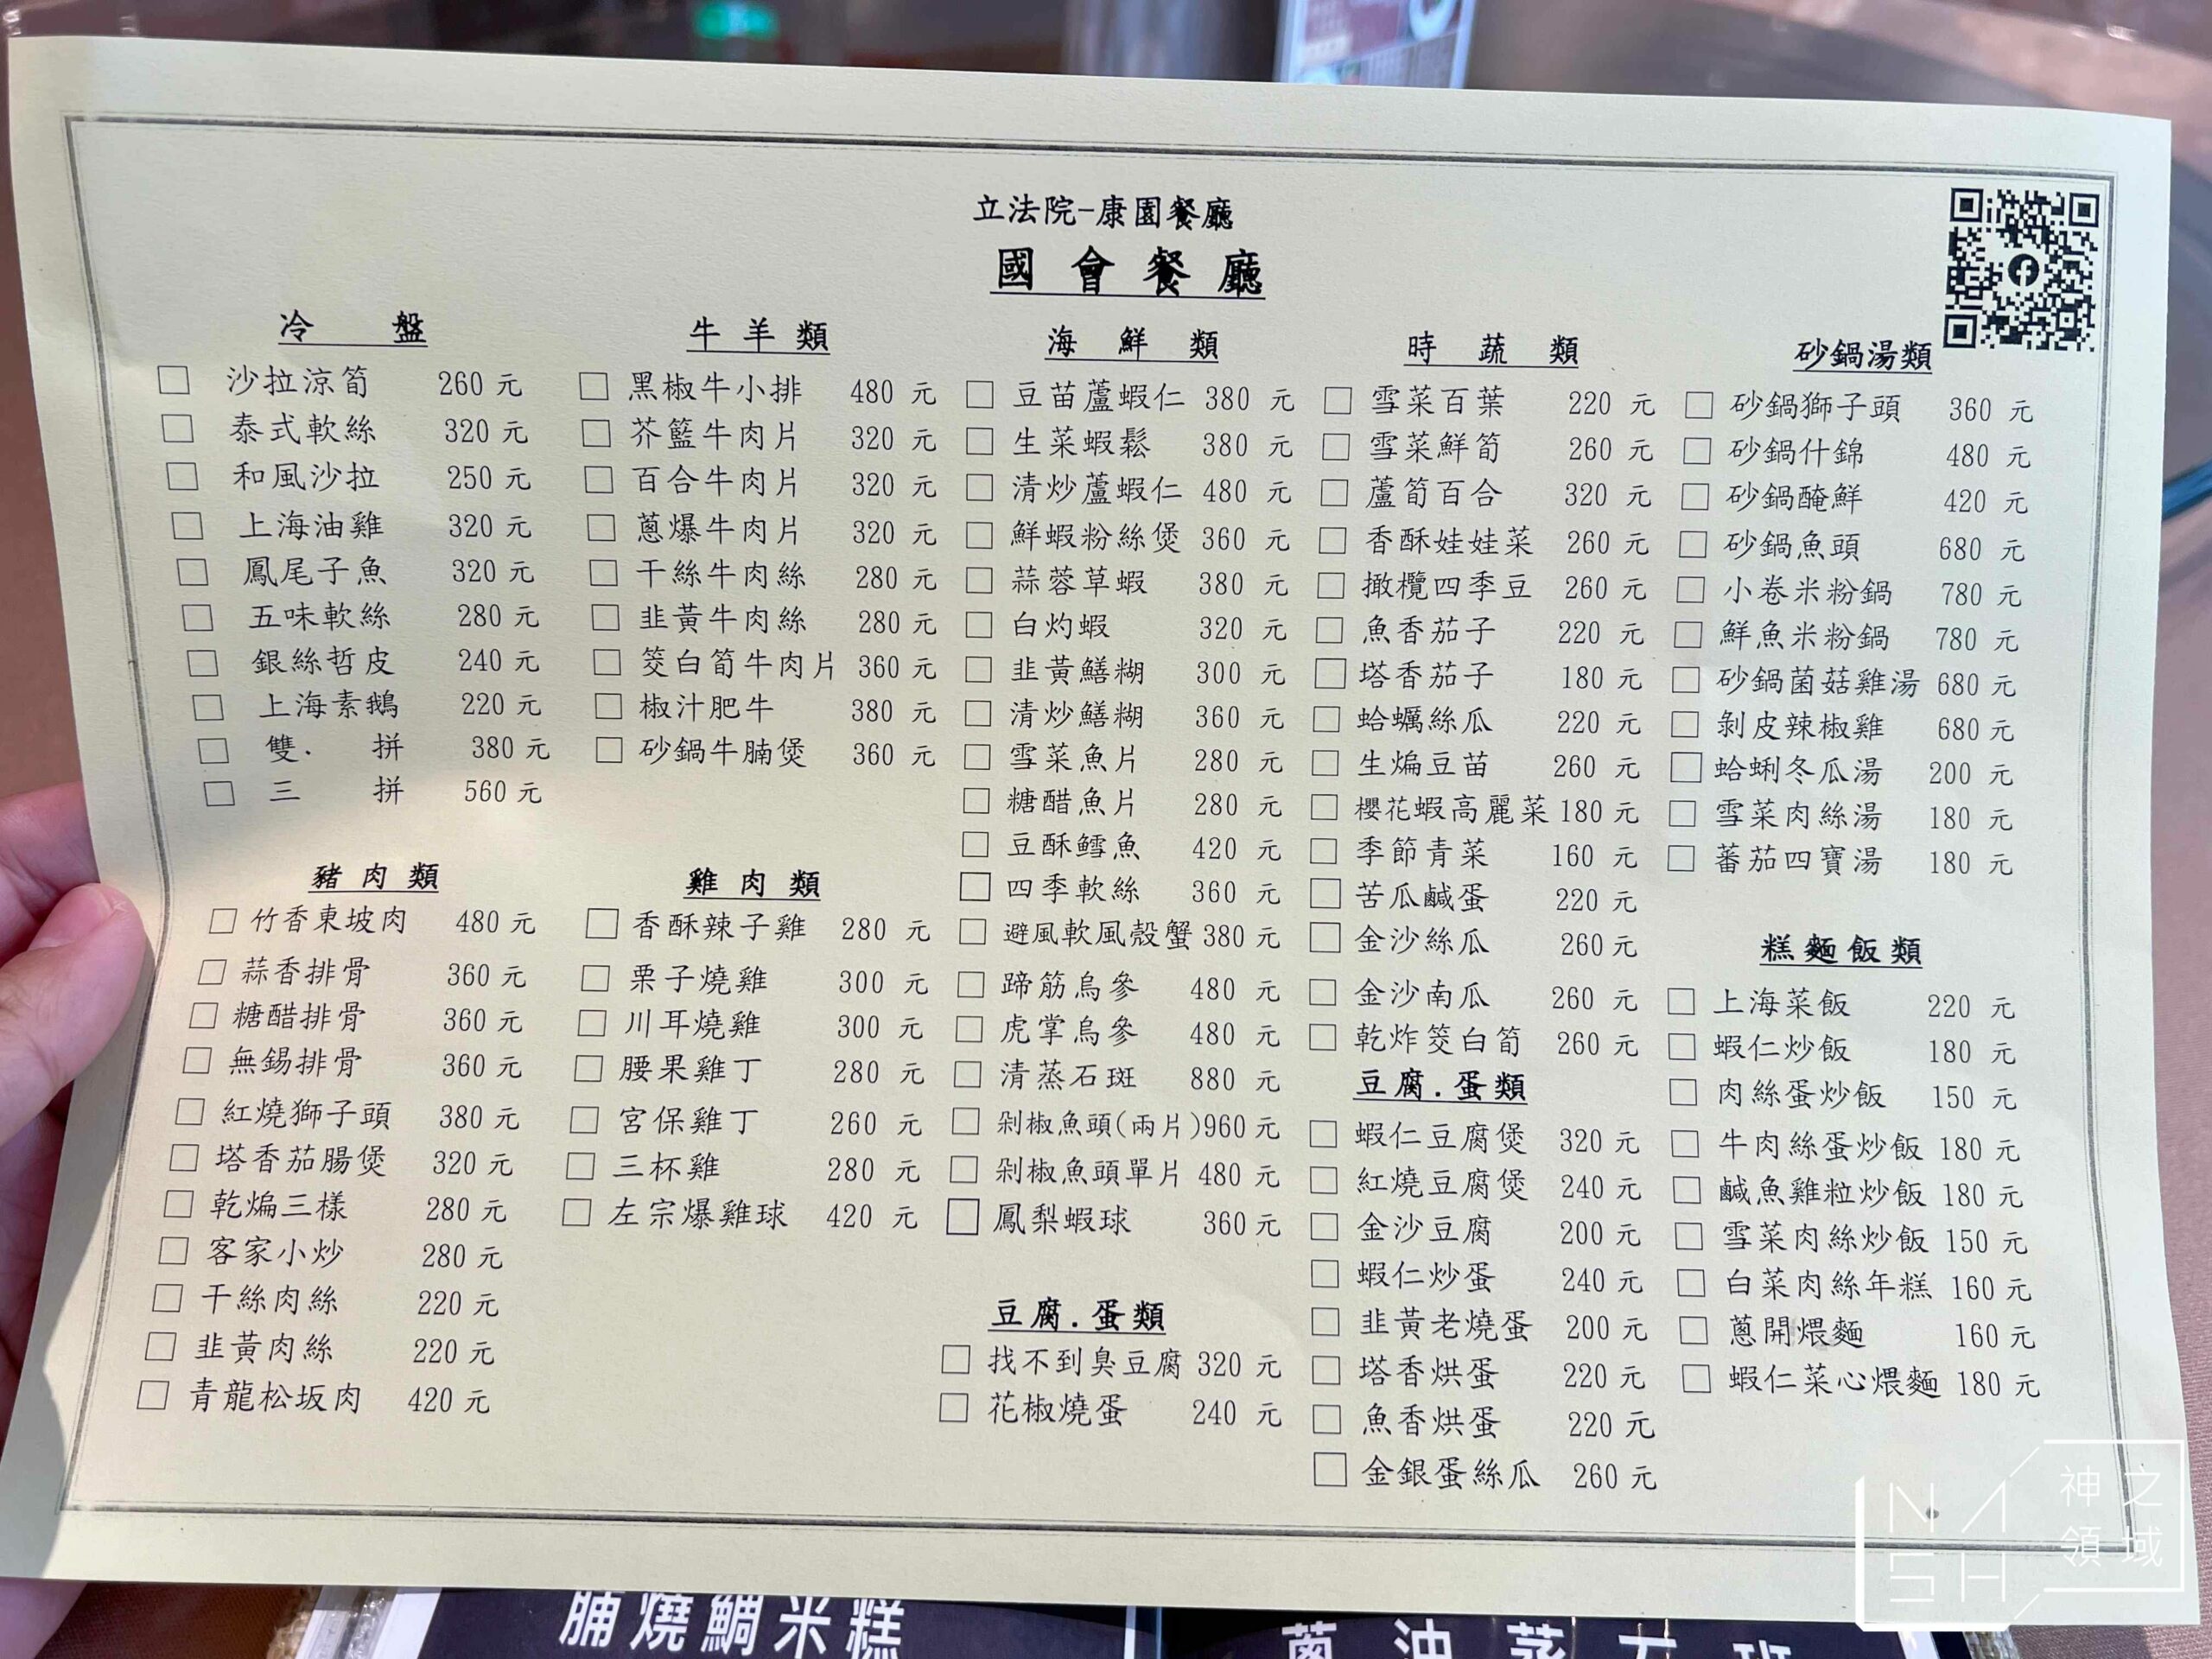 立法院-康園餐廳
國會餐廳
冷盤
沙拉涼筍 260元
泰式軟絲 320元
和風沙拉 250元
上海油雞 320元
鳳尾子魚 320元
五味軟絲 280元
銀絲哲皮 240元
上海素鵝 220元
雙. 拼 380元
三 拼 560元
豬肉類
竹香東坡肉 480元
蒜香排骨 360元
糖醋排骨 360元
無錫排骨 360元
紅燒獅子頭 380元
塔香茄腸煲 320元
乾煸三樣 280元
客家小炒 280元
干絲肉絲 220元
韭黃肉絲 220元
青龍松坂肉 420元
牛羊類
黑椒牛小排 480元
芥籃牛肉片 320元
百合牛肉片 320元
蔥爆牛肉片 320元
干絲牛肉絲 280元
韭黃牛肉絲 280元
筊白筍牛肉片 360元
椒汁肥牛 380元
砂鍋牛腩煲 360元
雞肉類
香酥辣子雞 280元
栗子燒雞 300元
川耳燒雞 300元
腰果雞丁 280元
宮保雞丁 260元
三杯雞 280元
左宗爆雞球 420元
海鮮類
豆苗蘆蝦仁 380元
生菜蝦鬆 380元
清炒蘆蝦仁 480元
鮮蝦粉絲煲 360元
蒜蓉草蝦 380元
白灼蝦 320元
韭黃鱔糊 300元
清炒鱔糊 360元
雪菜魚片 280元
糖醋魚片 280元
豆酥鱈魚 420元
四季軟絲 360元
避風軟風殼蟹 380元
蹄筋烏參 480元
虎掌烏參 480元
清蒸石斑 880元
剁椒魚頭(兩片) 960元
剁椒魚頭單片 480元
鳳梨蝦球 360元
豆腐.蛋類
找不到臭豆腐 320元
花椒燒蛋 240元
時蔬類
雪菜百葉 220元
雪菜鮮筍 260元
蘆筍百合 320元
香酥娃娃菜 260元
橄欖四季豆 260元
魚香茄子 220元
塔香茄子 180元
蛤蠣絲瓜 220元
生煸豆苗 260元
櫻花蝦高麗菜 180元
季節青菜 160元
苦瓜鹹蛋 220元
金沙絲瓜 260元
金沙南瓜 260元
乾炸筊白筍 260元
豆腐.蛋類
蝦仁豆腐煲 320元
紅燒豆腐煲 240元
金沙豆腐 200元
蝦仁炒蛋 240元
韭黃老燒蛋 200元
塔香烘蛋 220元
魚香烘蛋 220元
金銀蛋絲瓜 260元
砂鍋湯類
砂鍋獅子頭 360元
砂鍋什錦 480元
砂鍋醃鮮 420元
砂鍋魚頭 680元
小卷米粉鍋 780元
鮮魚米粉鍋 780元
砂鍋菌菇雞湯 680元
剝皮辣椒雞 680元
蛤蜊冬瓜湯 200元
雪菜肉絲湯 180元
蕃茄四寶湯 180元
糕麵飯類
上海菜飯 220元
蝦仁炒飯 180元
肉絲蛋炒飯 150元
牛肉絲蛋炒飯 180元
鹹魚雞粒炒飯 180元
雪菜肉絲炒飯 150元
白菜肉絲年糕 160元
蔥開煨麵 160元
蝦仁菜心煨麵 180元
燒鯛米糕
NASH
神之
領域